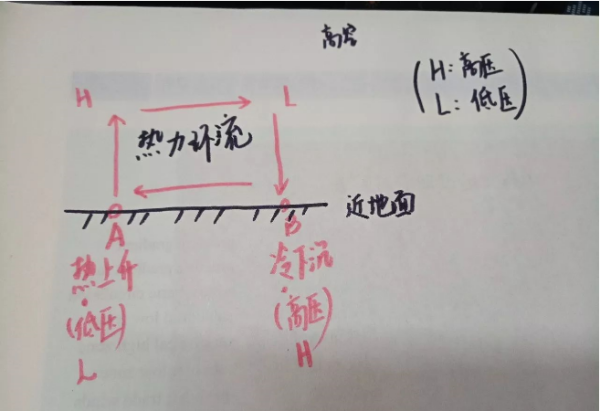 高空
(H:高压
L:低压)
H
L
热力环流
近地面
A
B
热上升
冷下沉
(低压)
(高压)
L
H